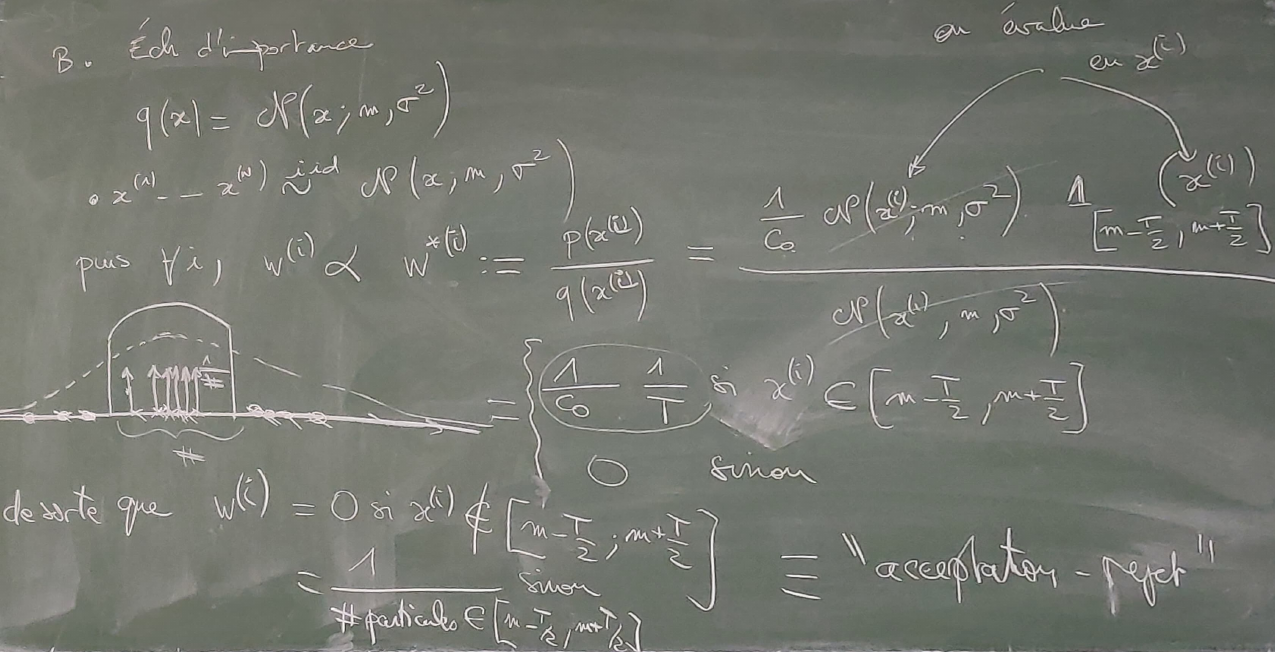 B. Éch d'importance
q(x) = N(x; m, σ²)
• x⁽¹⁾ -- x⁽ᴺ⁾ ~ⁱⁱᵈ N(x; m, σ²)
on évalue
en x⁽ⁱ⁾
puis ∀i, w⁽ⁱ⁾ ∝ w*⁽ⁱ⁾ := p(x⁽ⁱ⁾) / q(x⁽ⁱ⁾) = 1/C₀ N(x⁽ⁱ⁾; m, σ²) 𝟙[m-T/2, m+T/2] (x⁽ⁱ⁾) / N(x⁽ⁱ⁾, m, σ²)
1/#
#
= { 1/C₀ 1/T si x⁽ⁱ⁾ ∈ [m-T/2, m+T/2]
0 sinon
de sorte que w⁽ⁱ⁾ = 0 si x⁽ⁱ⁾ ∉ [m-T/2; m+T/2]
= 1 / # particules ∈ [m-T/2, m+T/2] sinon
≡ "acceptation-rejet"